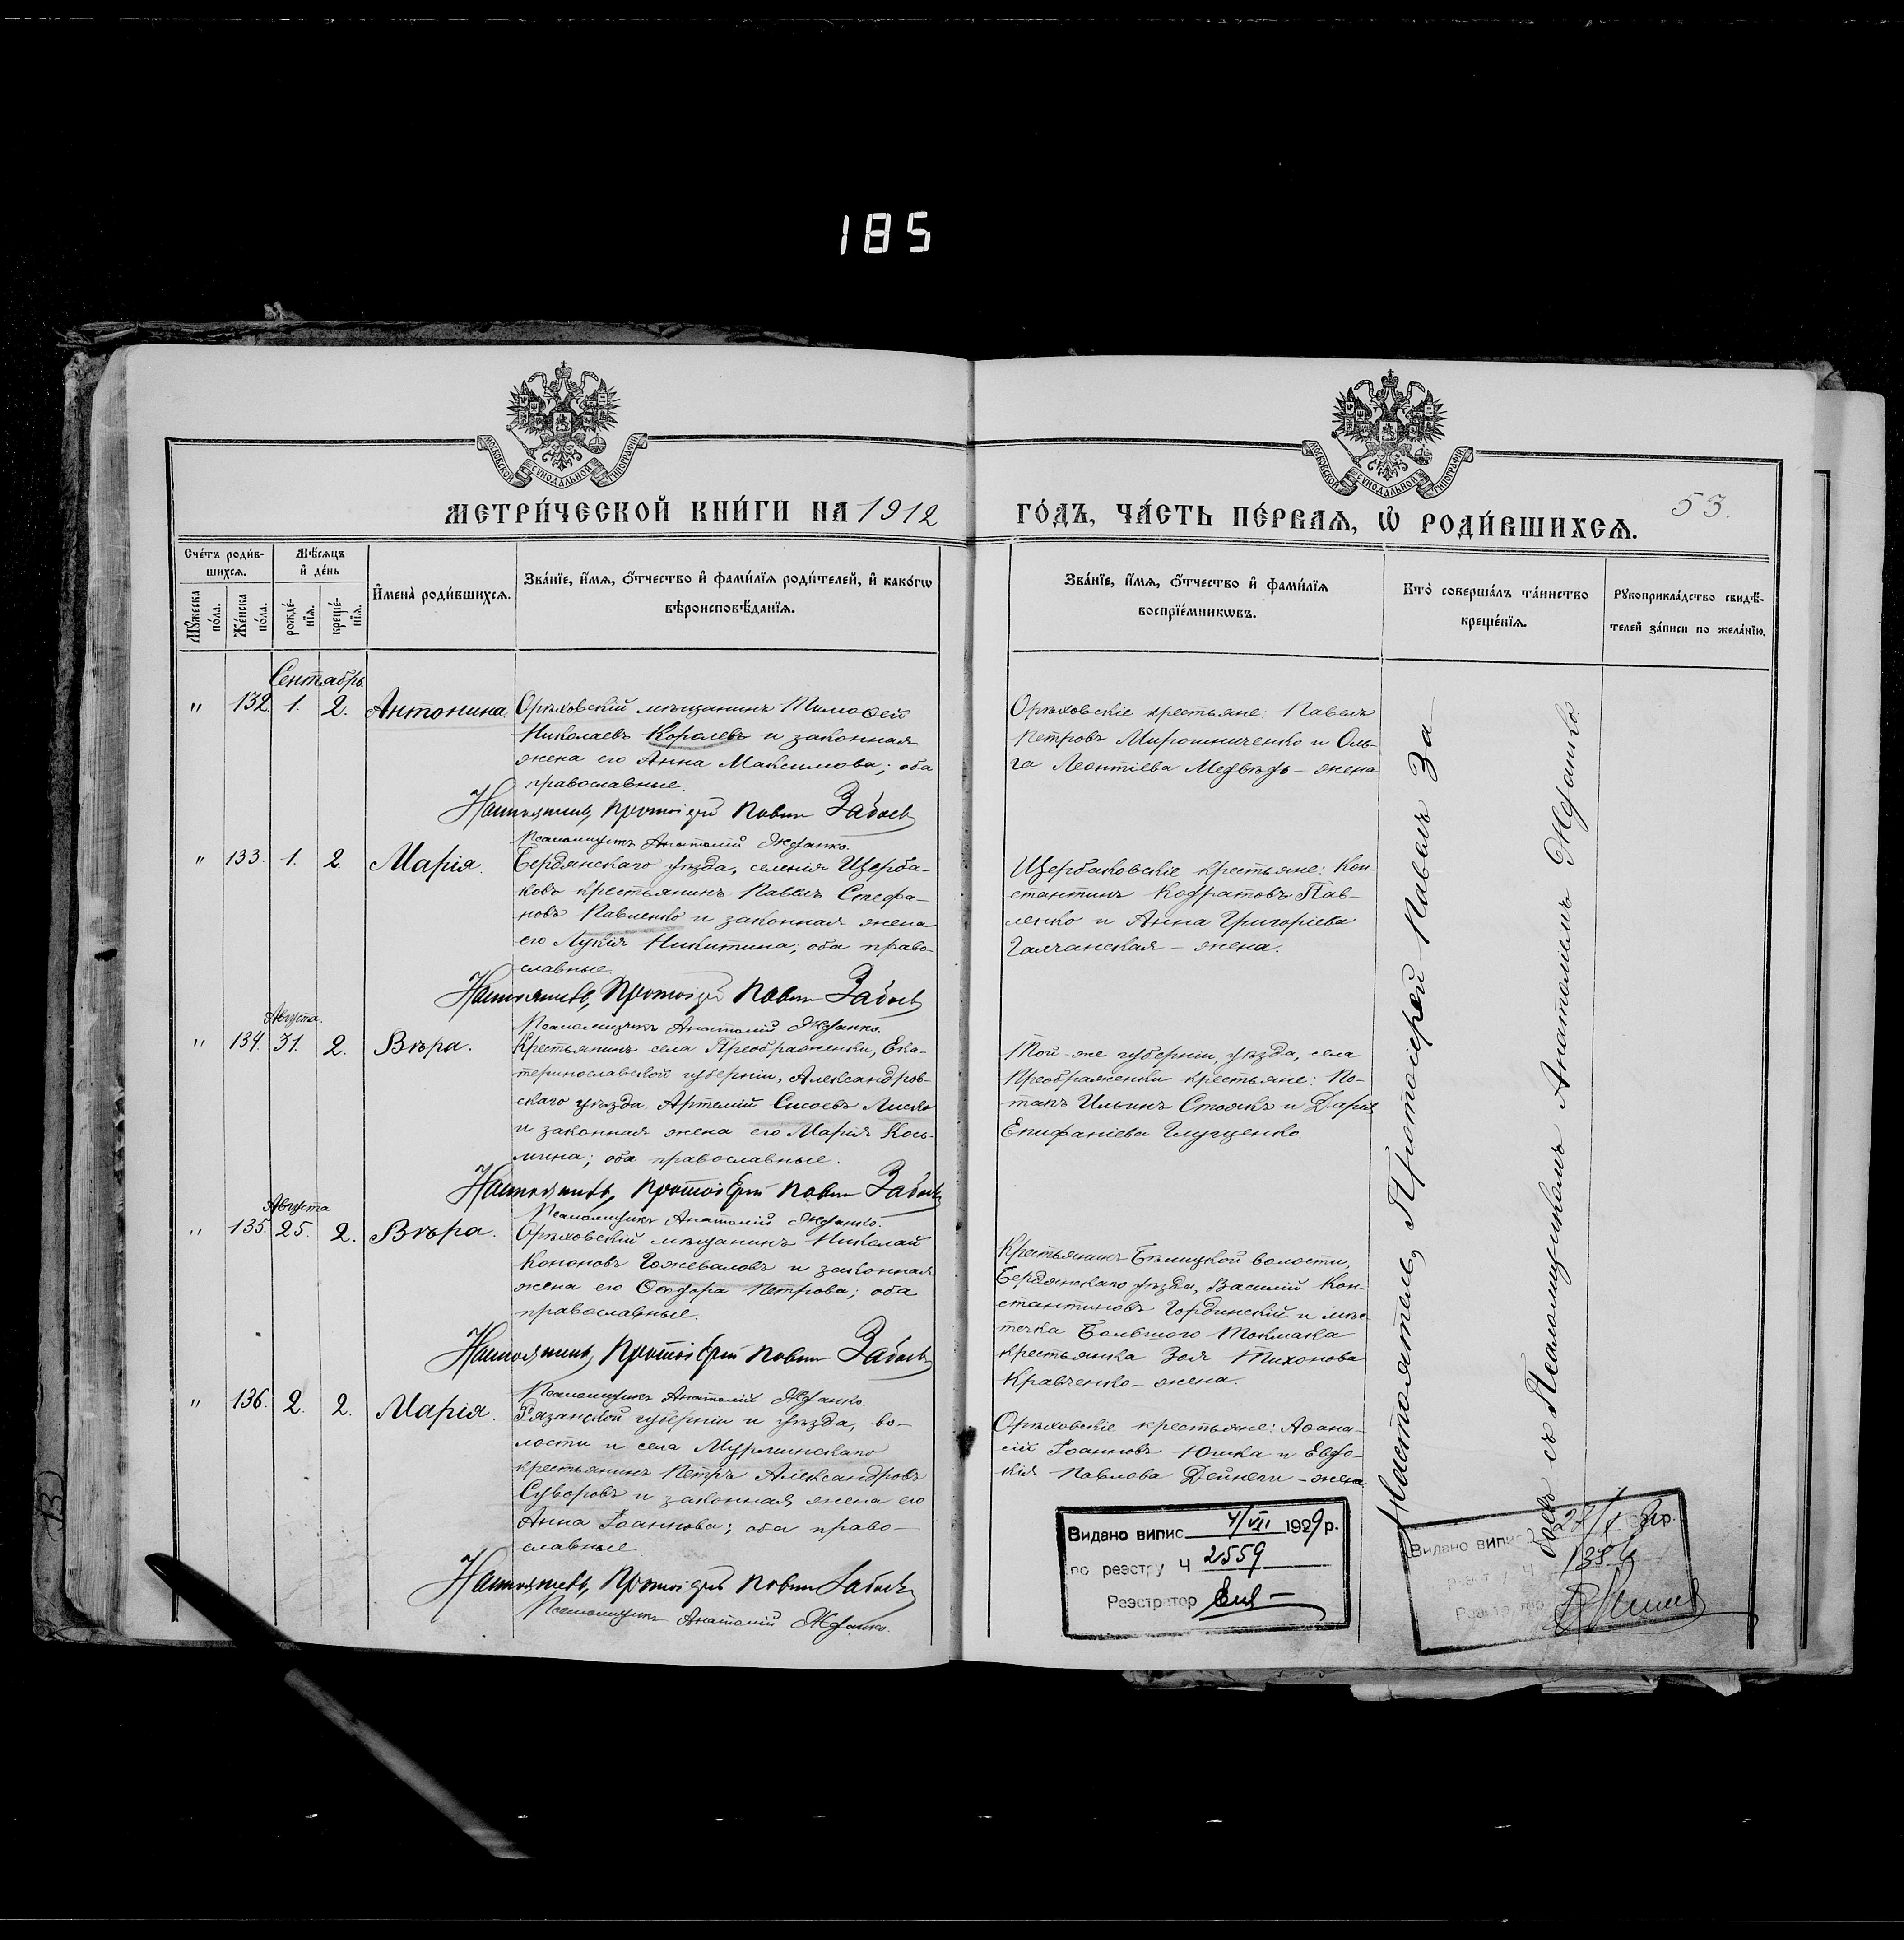 185
МОСКОВСКОЙ СѴНОДАЛЬНОЙ ТИПОГРАФІИ
МОСКОВСКОЙ СѴНОДАЛЬНОЙ ТИПОГРАФІИ
МЕТРИ́ЧЕСКОЙ КНИ́ГИ НА 1912
ГО́ДЪ, ЧА́СТЬ ПЕ́РВАѦ, Ѡ҆ РОДИ́ВШИХСѦ.
53.
Сче́тъ роди́в-
шихсѧ.
Мꙋ́жеска по́ла.
Же́нска по́ла.
Мѣ́сѧцъ
и҆ де́нь
рожде́-
нїѧ.
креще́-
нїѧ.
И҆мена̀ роди́вшихсѧ.
Зва́нїе, и҆́мѧ, ѻ҆́тчество и҆ фами́лїѧ роди́телей, и҆ како́гѡ
вѣроисповѣ́данїѧ.
Зва́нїе, и҆́мѧ, ѻ҆́тчество и҆ фами́лїѧ
воспрїе́мникѡвъ.
Кто̀ соверша́лъ та́инство
креще́нїѧ.
Рꙋкоприкла́дство свидѣ́-
телей за́писи по жела́нїю.
Сентябрь
" 132. 1. 2. Антонина. Орѣховскій мѣщанинъ Тимоѳей
Николаевъ Королевъ и законная
жена его Анна Максимова; оба
православные.
Настоятель, Протоіерей Павелъ Забаев
Псаломщикъ Анатолій Жданко.
Орѣховскіе крестьяне: Павелъ
Петровъ Мирошниченко и Оль-
га Леонтіева Медвѣдь - жена
" 133. 1. 2 Марія. Бердянскаго уѣзда, селенія Щерба-
ково крестьянинъ Павелъ Стефа-
новъ Павленко и законная жена
его Лукія Никитина; оба право-
славные.
Настоятель, Протоіерей Павелъ Забаев
Псаломщикъ Анатолій Жданко.
Щербаковскіе крестьяне: Кон-
стантинъ Кодратовъ Пав-
ленко и Анна Григоріева
Галчанская - жена.
Августа.
" 134. 31. 2. Вѣра. Крестьянинъ села Преображенки, Ека-
теринославской губерніи, Александров-
скаго уѣзда Артемій Сисоевъ Лиско
и законная жена его Марія Кось-
мина; оба православные.
Настоятель, Протоіерей Павелъ Забаев
Псаломщикъ Анатолій Жданко.
Той-же губерніи, уѣзда, села
Преображенки крестьяне: По-
тапъ Ильинъ Стоякъ и Дарія
Епифаніева Глущенко.
Августа
" 135. 25. 2. Вѣра. Орѣховскій мѣщанинъ Николай
Кононовъ Гожеваловъ и законная
жена его Ѳеодора Петрова; оба
православные.
Настоятель, Протоіерей Павелъ Забаев
Псаломщикъ Анатолій Жданко
Крестьянинъ Бѣлицкой волости,
Бердянскаго уѣзда, Василій Кон-
стантиновъ Гординскій и мѣс-
течка Большого Токмака
крестьянка Зоя Тихонова
Кравченко - жена.
" 136. 2. 2. Марія. Рязанской губерніи и уѣзда, во-
лости и села Мурминскаго
крестьянинъ Петръ Александровъ
Суворовъ и законная жена его
Анна Іоаннова; оба право-
славные
Настоятель, Протоіерей Павелъ Забаев
Псаломщикъ Анатолій Жданко.
Орѣховскіе крестьяне: Аѳана-
сій Іоанновъ Юшка и Евдо-
кія Павлова Дейнеги - жена
Настоятель, Протоіерей Павелъ За-
баевъ съ Псаломщикомъ Анатоліемъ Жданко.
Видано випис 4/VII 1929р.
по реэстру Ч 2559
Реэстратор
Видано випис
по реэстру Ч
Реэстратор
13